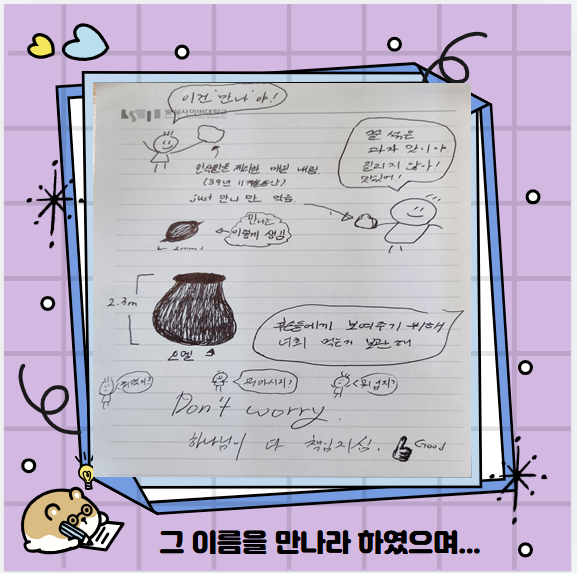 이건 '만나' 야!
숭실사이버대학교
꿀 섞은
과자 맛이야
질리지 않아!
맛있어!
안식일을 제외한 매일 내림.
(39년 11개월
just 만나 만 먹음.
만나는
이렇게 생김
2.3m
오멜
후손들에게 보여주기 위해
너희 먹는거 보관해
뭐먹지?
뭐마시지?
뭐입지?
Don't worry.
하나님이 다 책임지심. Good
그 이름을 만나라 하였으며...